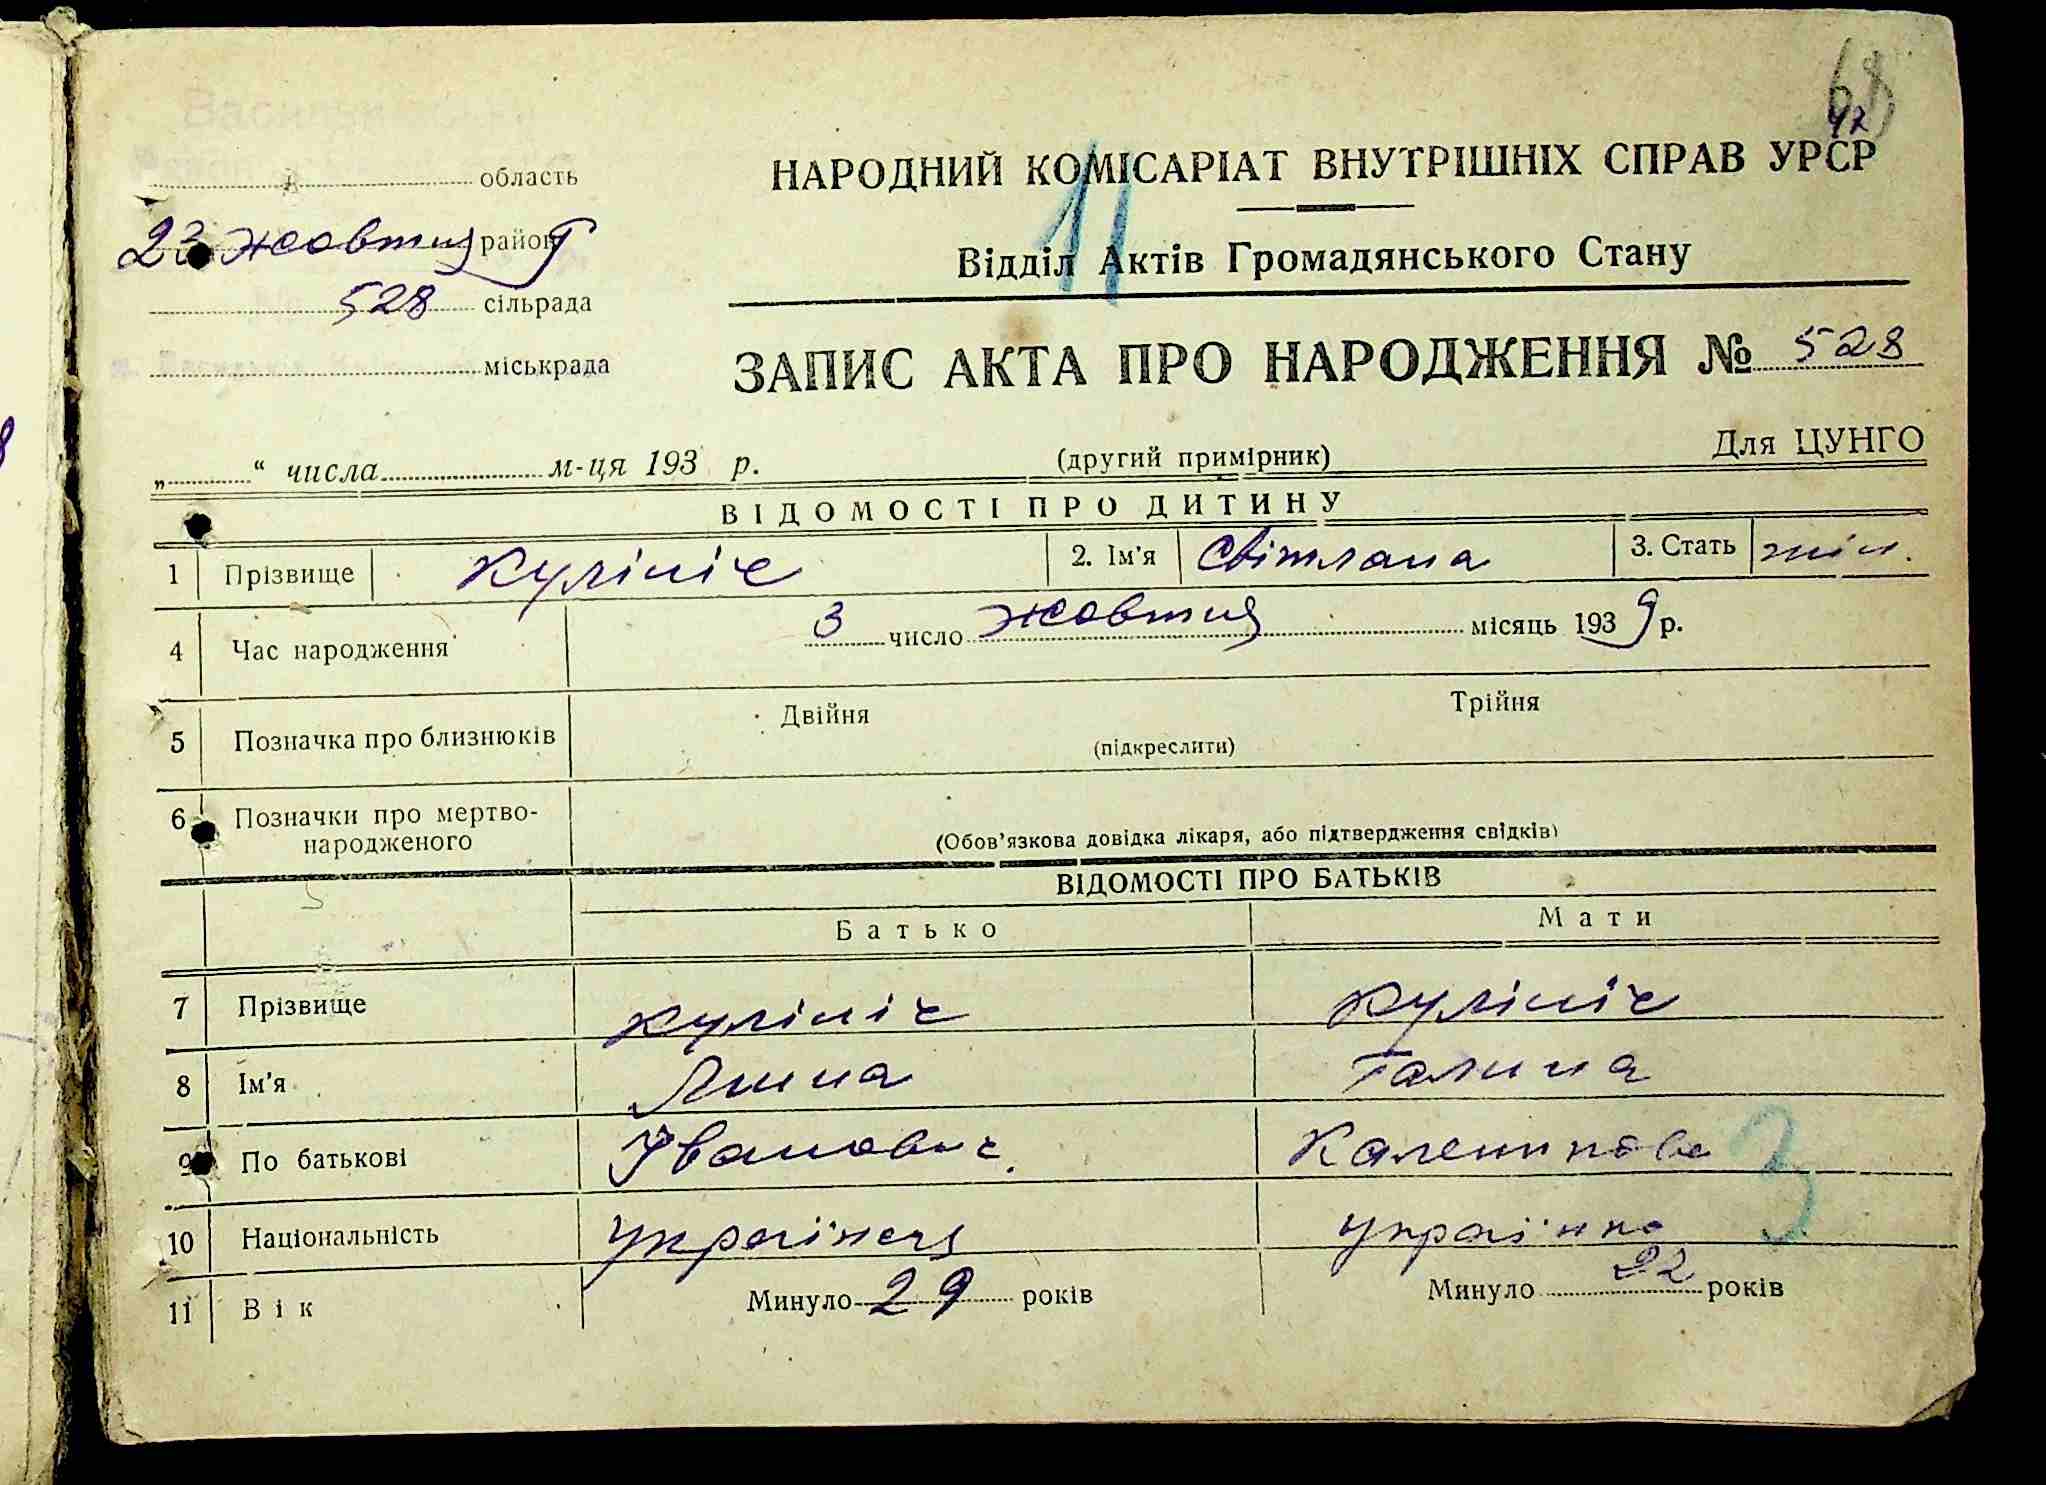 область
НАРОДНИЙ КОМІСАРІАТ ВНУТРІШНІХ СПРАВ УРСР
23 жовтня район 9
Відділ Актів Громадянського Стану
528 сільрада
міськрада
ЗАПИС АКТА ПРО НАРОДЖЕННЯ № 528
11
„ “ числа м-ця 193 р.
(другий примірник)
Для ЦУНГО
ВІДОМОСТІ ПРО ДИТИНУ
1 Прізвище Кулініч 2. Ім'я Світлана 3. Стать жін.
4 Час народження 3 число жовтня місяць 1939 р.
5 Позначка про близнюків Двійня Трійня
(підкреслити)
6 Позначки про мертво-
народженого
(Обов'язкова довідка лікаря, або підтвердження свідків)
ВІДОМОСТІ ПРО БАТЬКІВ
Батько Мати
7 Прізвище Кулініч Кулініч
8 Ім'я Галина
9 По батькові Іванович. Каленикова
3
10 Національність українець українка
11 Вік Минуло 29 років Минуло 22 років